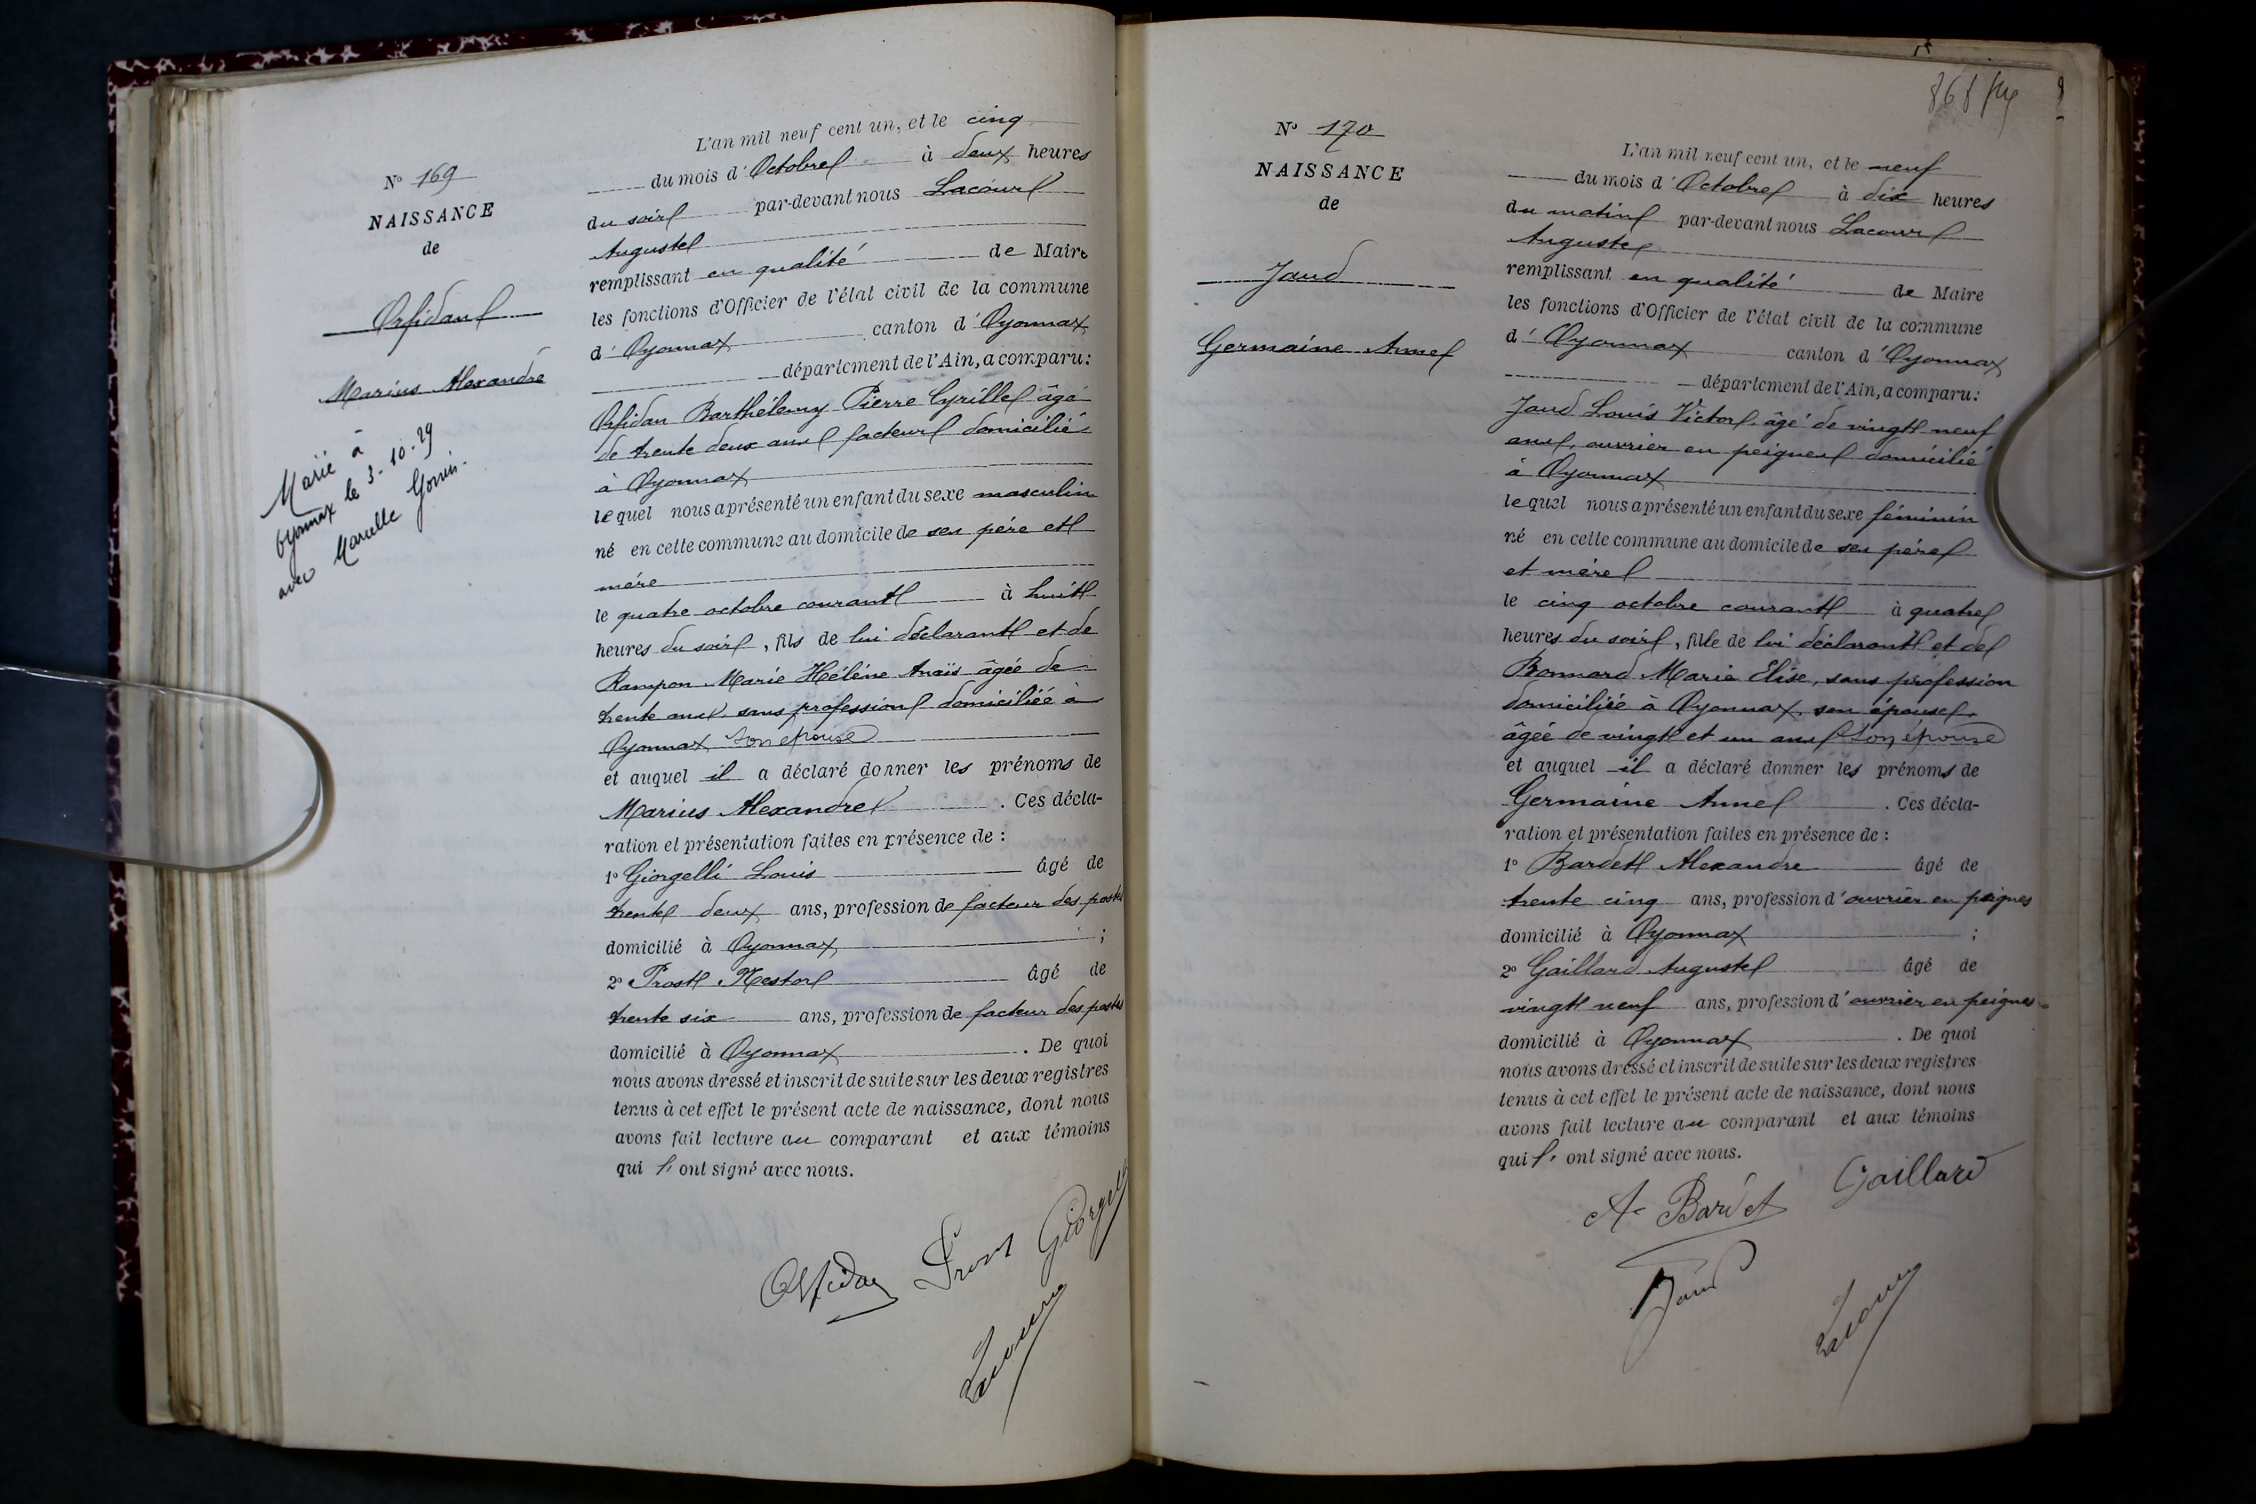 N° 169
NAISSANCE
de
Orfidan
Marius Alexandre
Marié à
Oyonnax le 3-10-29
avec Marcelle
L'an mil neuf cent un, et le cinq
du mois d'Octobre à deux heures
du soir par-devant nous Lacour
Auguste
remplissant en qualité de Maire
les fonctions d'Officier de l'état civil de la commune
d'Oyonnax canton d'Oyonnax
département de l'Ain, a comparu:
Orfidan Barthélemy Pierre Cyrille âgé
de trente deux ans facteur domicilié
à Oyonnax
lequel nous a présenté un enfant du sexe masculin
né en cette commune au domicile de ses père et
mère
le quatre octobre courant à huit
heures du soir, fils de lui déclarant et de
Rampon Marie Hélène Anaïs âgée de
trente ans, sans profession domiciliée à
Oyonnax son épouse
et auquel il a déclaré donner les prénoms de
Marius Alexandre. Ces décla-
ration et présentation faites en présence de :
1° Giorgelli Louis âgé de
trente deux ans, profession de facteur des postes
domicilié à Oyonnax ;
2° Prost Nestor âgé de
trente six ans, profession de facteur des postes
domicilié à Oyonnax. De quoi
nous avons dressé et inscrit de suite sur les deux registres
tenus à cet effet le présent acte de naissance, dont nous
avons fait lecture au comparant et aux témoins
qui l' ont signé avec nous.
Orfidan Prost Giorgelli
Lacour
868
N° 170
NAISSANCE
de
Jaud
Germaine Anne
L'an mil neuf cent un, et le neuf
du mois d'Octobre à dix heures
du matin par-devant nous Lacour
Auguste
remplissant en qualité de Maire
les fonctions d'Officier de l'état civil de la commune
d'Oyonnax canton d'Oyonnax
département de l'Ain, a comparu:
Jaud Louis Victor, âgé de vingt neuf
ans, ouvrier en peignes domicilié
à Oyonnax
lequel nous a présenté un enfant du sexe féminin
né en cette commune au domicile de ses père
et mère
le cinq octobre courant à quatre
heures du soir, fille de lui déclarant et de
Bonnard Marie Elise, sans profession
domiciliée à Oyonnax, son épouse,
âgée de vingt et un ans son épouse
et auquel il a déclaré donner les prénoms de
Germaine Anne. Ces décla-
ration et présentation faites en présence de :
1° Bardet Alexandre âgé de
trente cinq ans, profession d'ouvrier en peignes
domicilié à Oyonnax ;
2° Gaillard Auguste âgé de
vingt neuf ans, profession d'ouvrier en peignes
domicilié à Oyonnax. De quoi
nous avons dressé et inscrit de suite sur les deux registres
tenus à cet effet le présent acte de naissance, dont nous
avons fait lecture au comparant et aux témoins
qui l' ont signé avec nous.
A. Bardet Gaillard
Jaud
Lacour